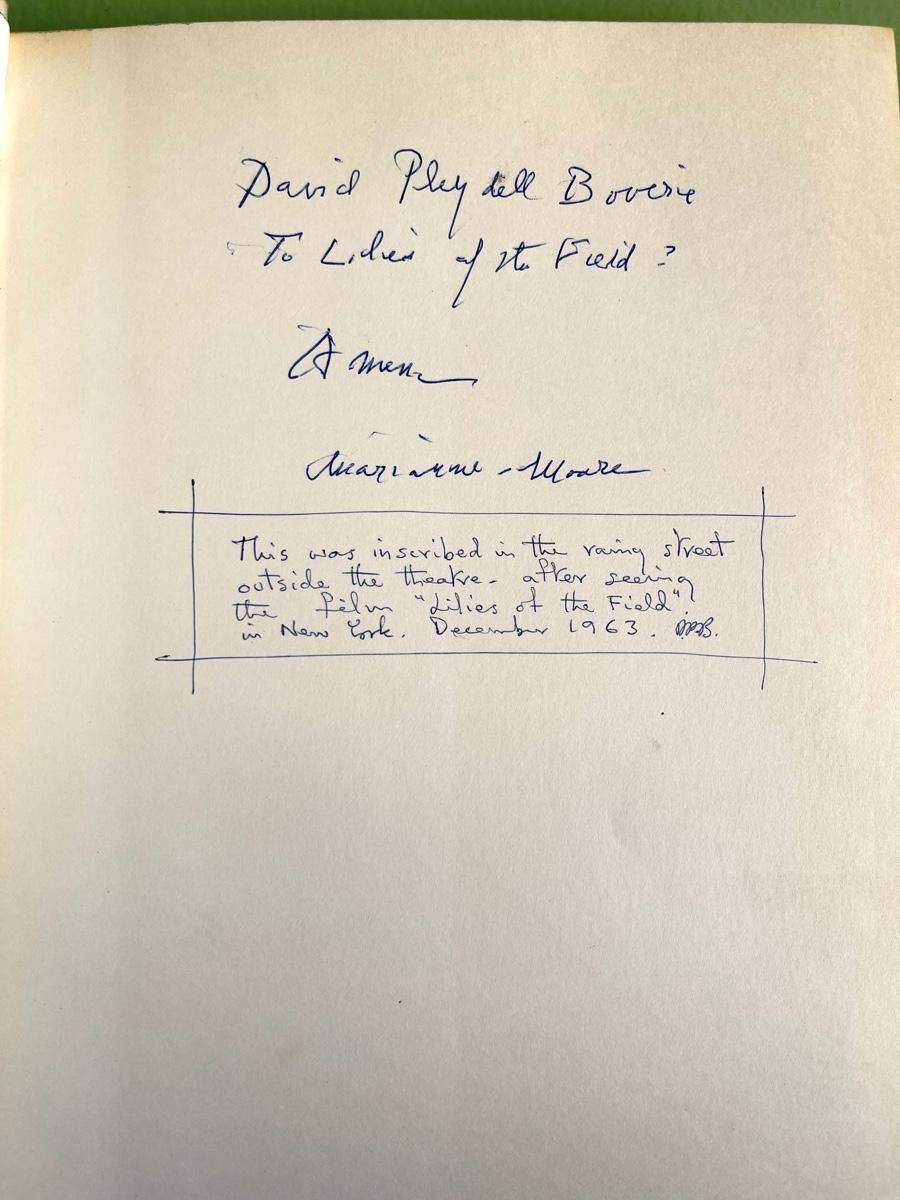 David Pleydell Bouverie
To Lilies of the Field?
Amen
Marianne Moore
This was inscribed in the rainy street
outside the theatre - after seeing
the film "Lilies of the Field".
in New York. December 1963.